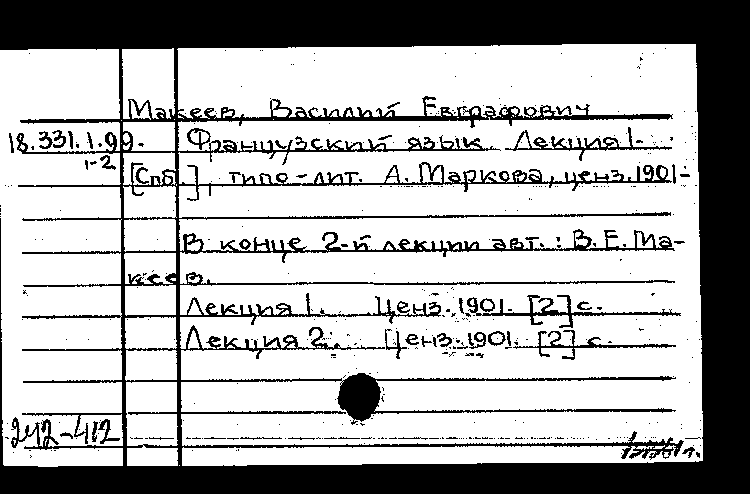 Макеев, Василий Евграфович
18.331.1.99. Французский язык. Лекция 1-
1-2 [Спб.], типо-лит. А. Маркова, ценз. 1901-
В конце 2-й лекции авт.: В. Е. Ма-
кеев.
Лекция 1. Ценз. 1901. [2] с.
Лекция 2. Ценз. 1901. [2] с.
242-412